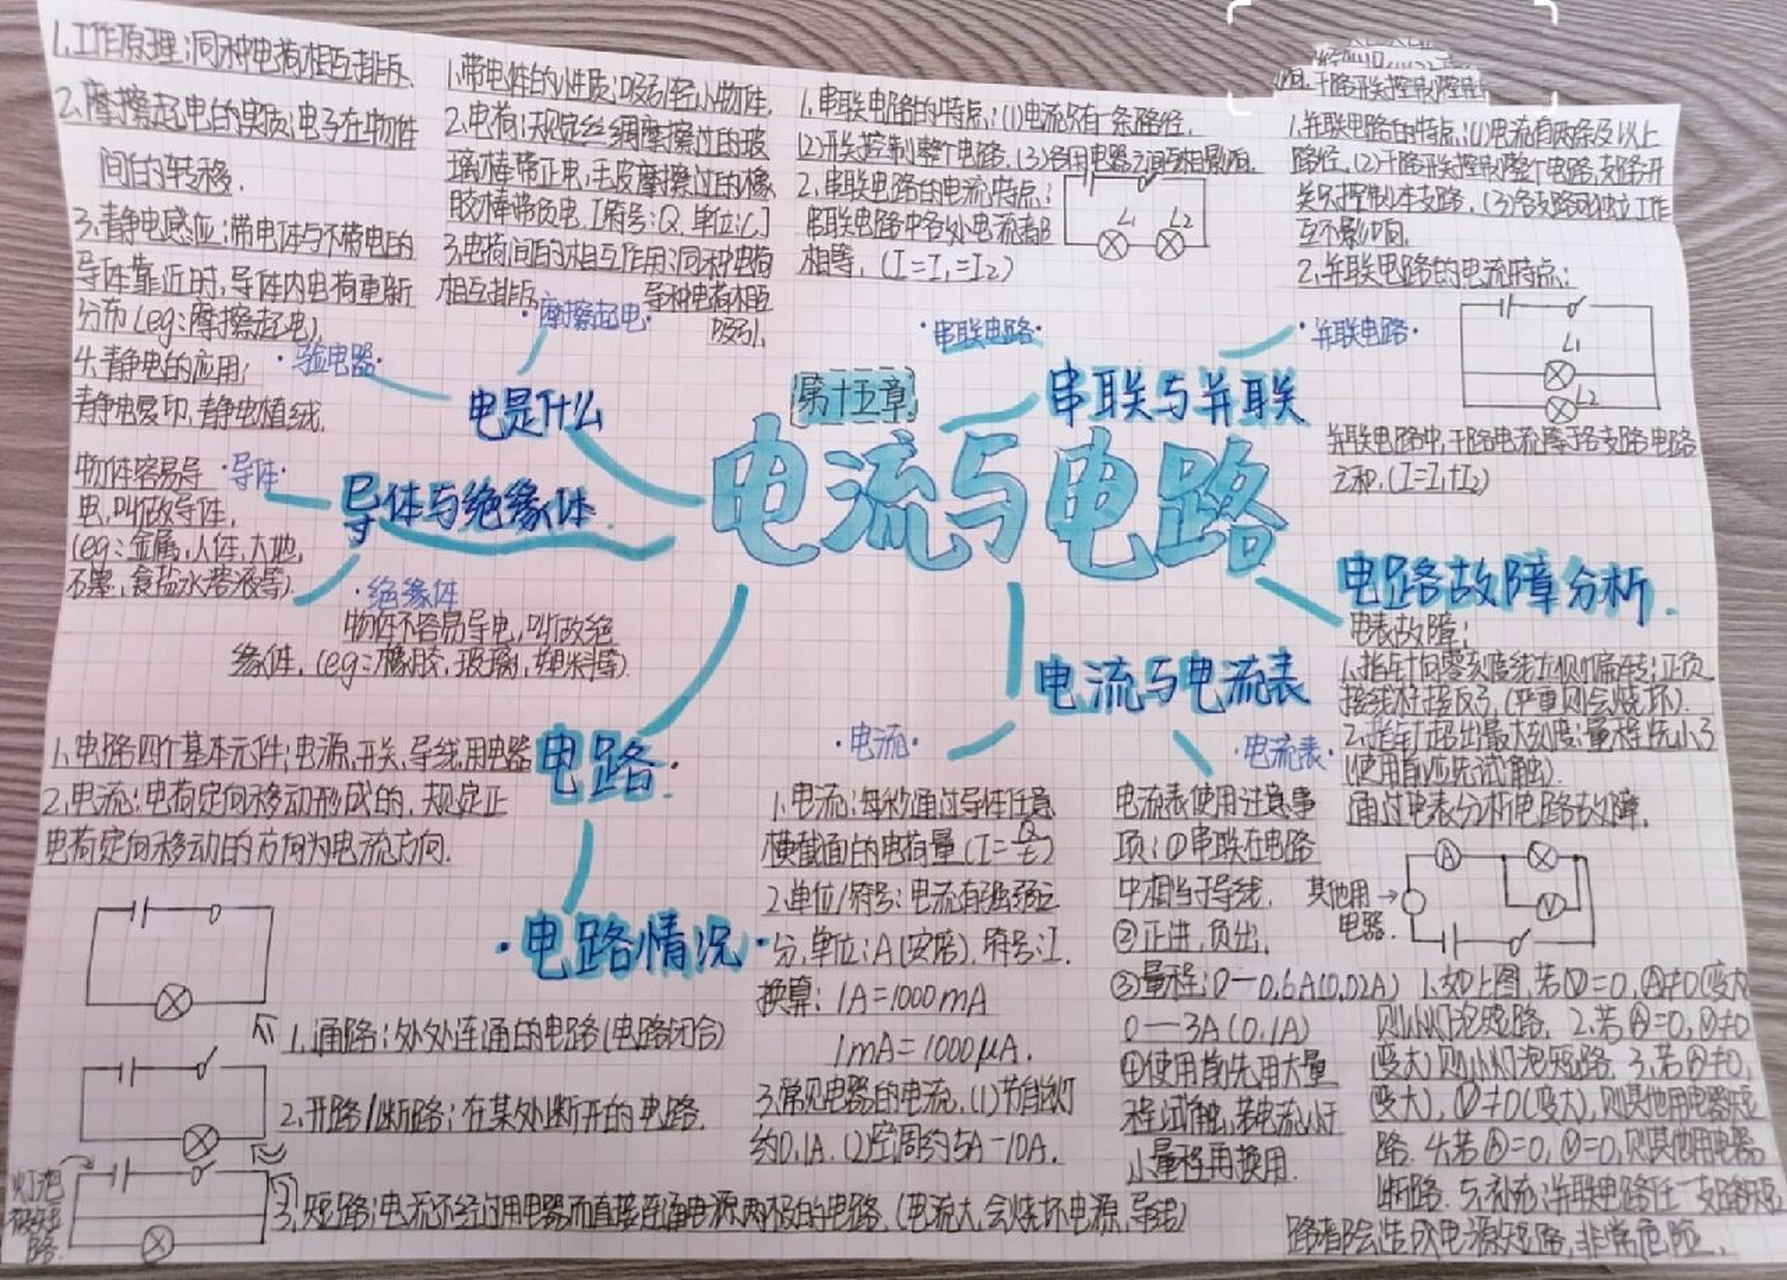 1.工作原理:同种电荷相互排斥.
2.摩擦起电的实质:电子在物体
间的转移.
3.静电感应:带电体与不带电的
导体靠近时,导体内电荷重新
分布(eg:摩擦起电).
4.静电的应用:
静电复印,静电植绒.
·验电器·
1.带电体的性质:吸引轻小物体.
2.电荷:规定丝绸摩擦过的玻
璃棒带正电,毛皮摩擦过的橡
胶棒带负电.[符号:Q.单位:C]
3.电荷间的相互作用:同种电荷
相互排斥 导种电荷相互
吸引.
·摩擦起电·
电是什么
1.串联电路的特点:(1)电流只有一条路径.
(2)开关控制整个电路.(3)各用电器之间互相影响.
2.串联电路的电流特点:
串联电路中各处电流都
相等.(I=I₁=I₂)
L1 L2
·串联电路·
干路开关控制
1.并联电路的特点:(1)电流有两条及以上
路径.(2)干路开关控制整个电路,支路开
关只控制本支路.(3)各支路可独立工作
互不影响.
2.并联电路的电流特点:
·并联电路·
L1
L2
并联电路中,干路电流等于各支路电路
之和.(I=I₁+I₂)
第十五章
电流与电路
串联与并联
物体容易导
电,叫做导体.
(eg:金属,人体,大地,
石墨,食盐水溶液等)
·导体·
导体与绝缘体.
·绝缘体
物体不容易导电,叫做绝
缘体.(eg:橡胶,玻璃,塑料等)
电路故障分析.
电表故障:
1.指针向零刻度线左侧偏转:正负
接线柱接反了,(严重则会烧坏).
2.指针超出最大刻度:量程选小了
(使用前应先试触).
通过电表分析电路故障.
A V
其他用→
电器.
1.如上图,若Ⓥ=0,Ⓐ≠0(变大)
则小灯泡短路. 2.若Ⓐ=0,Ⓥ≠0
(变大)则小灯泡短路. 3.若Ⓐ≠0,
(变大),Ⓥ≠0(变大),则其他用电器短
路. 4.若Ⓐ=0,Ⓥ=0,则其他用电器
断路. 5.补充:并联电路任一支路短
路都会造成电源短路,非常危险.
电流与电流表
·电流·
1.电流:每秒通过导体任意
横截面的电荷量(I=Q/t)
2.单位/符号:电流有强弱之
分,单位:A(安培).符号:I.
换算:1A=1000mA
1mA=1000μA.
3.常见电器的电流.(1)节能灯
约0.1A.(2)空调约5A-10A.
·电流表·
电流表使用注意事
项:①串联在电路
中相当于导线.
②正进,负出.
③量程:0—0.6A(0.02A)
0—3A(0.1A)
④使用前先用大量
程试触,若电流小于
小量程再换用.
电路·
1.电路四个基本元件:电源,开关,导线,用电器
2.电流:电荷定向移动形成的,规定正
电荷定向移动的方向为电流方向.
·电路情况·
1.通路:处处连通的电路(电路闭合)
2.开路/断路:在某处断开的电路.
3.短路:电流不经过用电器而直接连通电源两极的电路.(电流大,会烧坏电源,导线)
灯泡
被短
路.